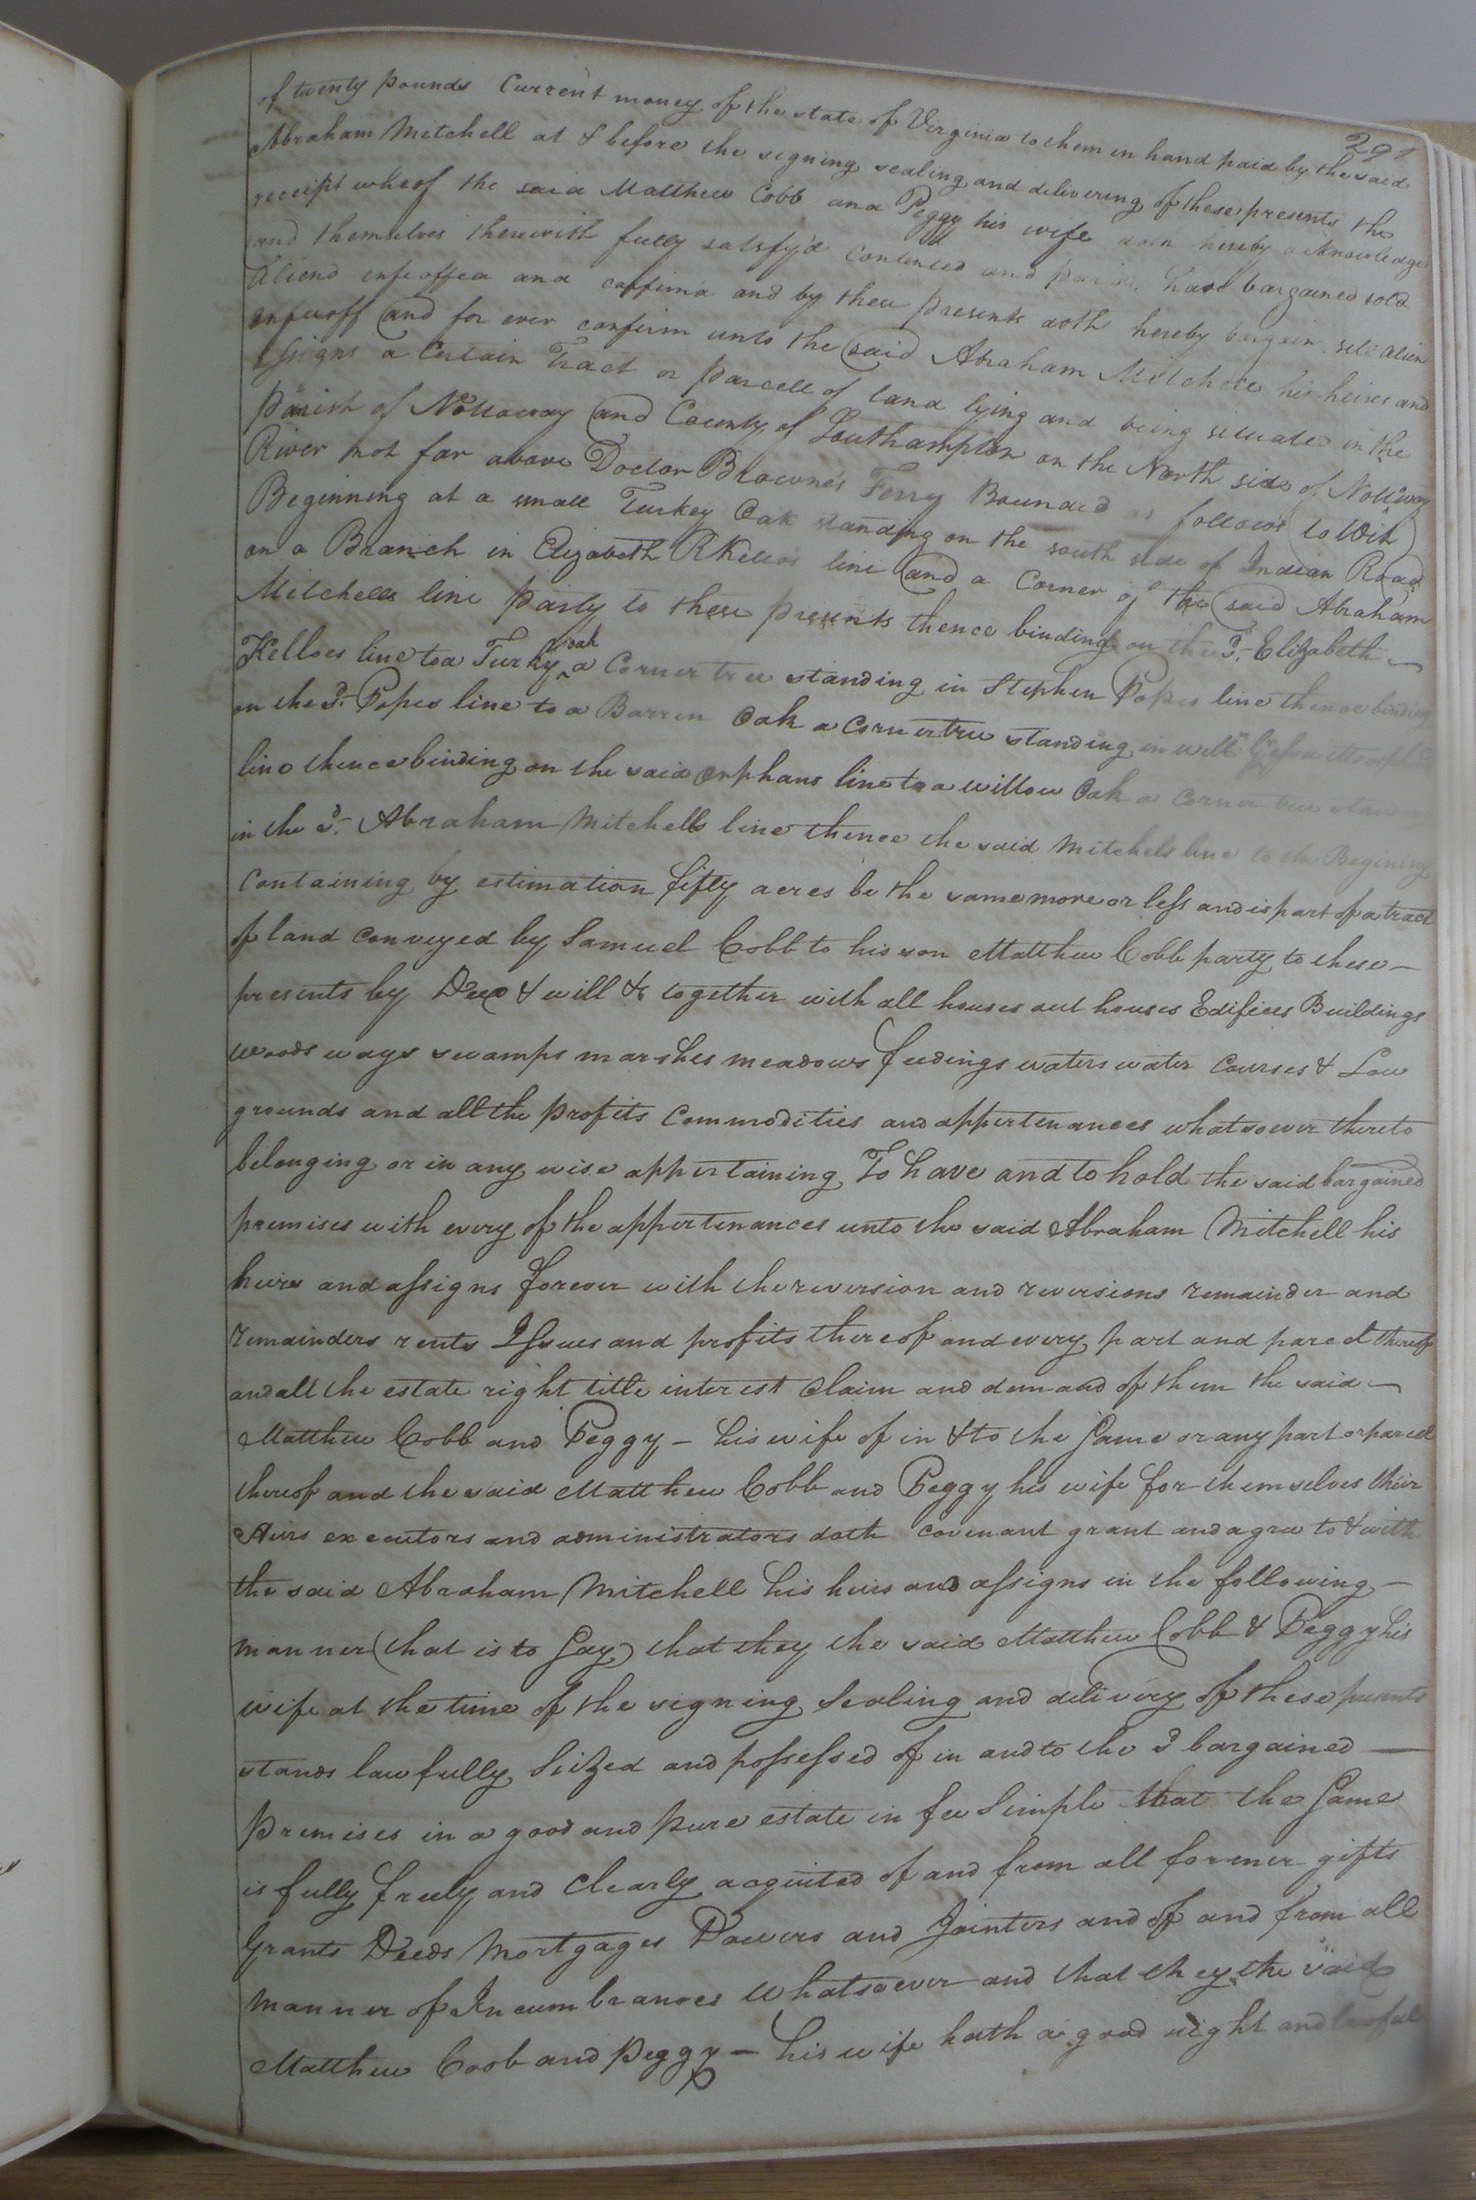 of twenty pounds Current money of the state of Virginia to them in hand paid by the said
Abraham Mitchell at & before the signing sealing and delivering of these presents the
receipt wheof the said Matthew Cobb and Peggy his wife doth hereby acknowledge
and themselves therewith fully satsfy'd contented and paid. have bargained sold
aliend infeoffed and confirm'd and by these presents doth hereby bargain sell alien
enfeoff and for ever confirm unto the said Abraham Mitchell his heires and
assigns a Certain Tract or parcell of land lying and being situate in the
parish of Nottoway and County of Southampton on the North side of Nottoway
River not far above Doctor Browne's Ferry Bounded as follows (to wit)
Beginning at a small Turkey Oak standing on the south side of Indian Road
on a Branch in Elizabeth R Kelloes line and a Corner of the said Abraham
Mitchells line party to these presents thence binding on the sd. Elizabeth
Kelloes line to a Turky oak a Corner tree standing in Stephen Popes line thence binding
on the sd. Popes line to a Barren Oak a Corner tree standing in will
line thence binding on the said orphans line to a willow Oak a Corner tree
in the sd. Abraham Mitchells line thence the said Mitchels line to the Begining
Containing by estimation fifty acres be the same more or less and is part of a tract
of land conveyed by Samuel Cobb to his son Matthew Cobb party to these
presents by Deed & will & together with all houses out houses Edifices Buildings
woods ways swamps marshes meadows feedings waters water Courses & Low
grounds and all the profits Commodities and appertenances whatsoever thereto
belonging or in any wise appertaining To have and to hold the said bargained
premises with every of the appertenances unto the said Abraham Mitchell his
heirs and assigns forever with the reversion and reversions remainder and
remainders rents Issues and profits thereof and every part and parcel thereof
and all the estate right title interest claim and demand of them the said
Matthew Cobb and Peggy – his wife of in & to the Same or any part or parcel
thereof and the said Matthew Cobb and Peggy his wife for themselves their
Heirs executors and administrators doth covenant grant and agree to & with
the said Abraham Mitchell his heirs and assigns in the following
manner (that is to Say) that they the said Matthew Cobb & Peggy his
wife at the time of the signing Sealing and delivery of these presents
stands lawfully Seized and possessed of in and to the sd bargained
premises in a good and pure estate in fee Simple that the Same
is fully freely and Clearly acquited of and from all former gifts
Grants Deeds Mortgages Dowers and Jointers and of and from all
manner of Incumbrances whatsoever and that they the said
Matthew Coob and Peggy – his wife hath a good right and lawful